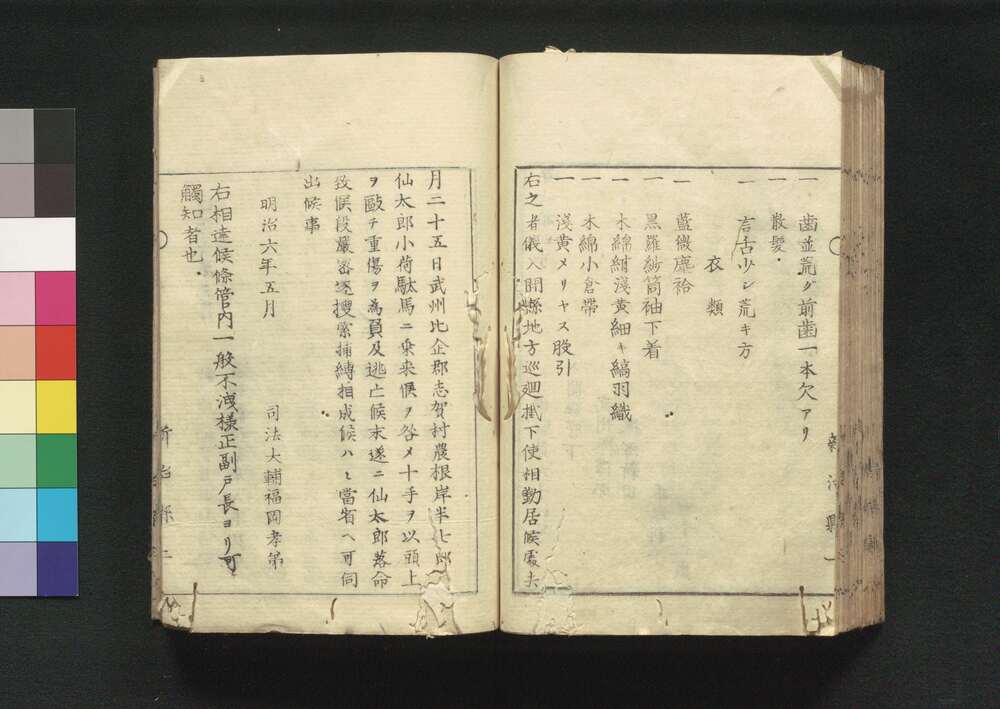 一 歯並荒グ前歯一本欠アリ
一 散髪
一 言舌少シ荒キ方
衣類
一 藍微塵袷
一 黒羅紗筒袖下着
一 木綿紺浅黄細キ縞羽織
一 木綿小倉帯
一 浅黄メリヤス股引
右之者儀入間縣地方巡廻掛下使相勤居候處去
月二十五日武州比企郡志賀村農根岸半七郎
仙太郎小荷駄馬ニ乗来候ヲ咎メ十手ヲ以頭上
ヲ毆チ重傷ヲ為負及逃亡候末遂ニ仙太郎落命
致候段嚴密逐捜索捕縛相成候ハヽ當省ヘ可伺
出候事
明治六年五月 司法大輔福岡孝弟
右相達候條管内一般不洩様正副戸長ヨリ可
觸知者也